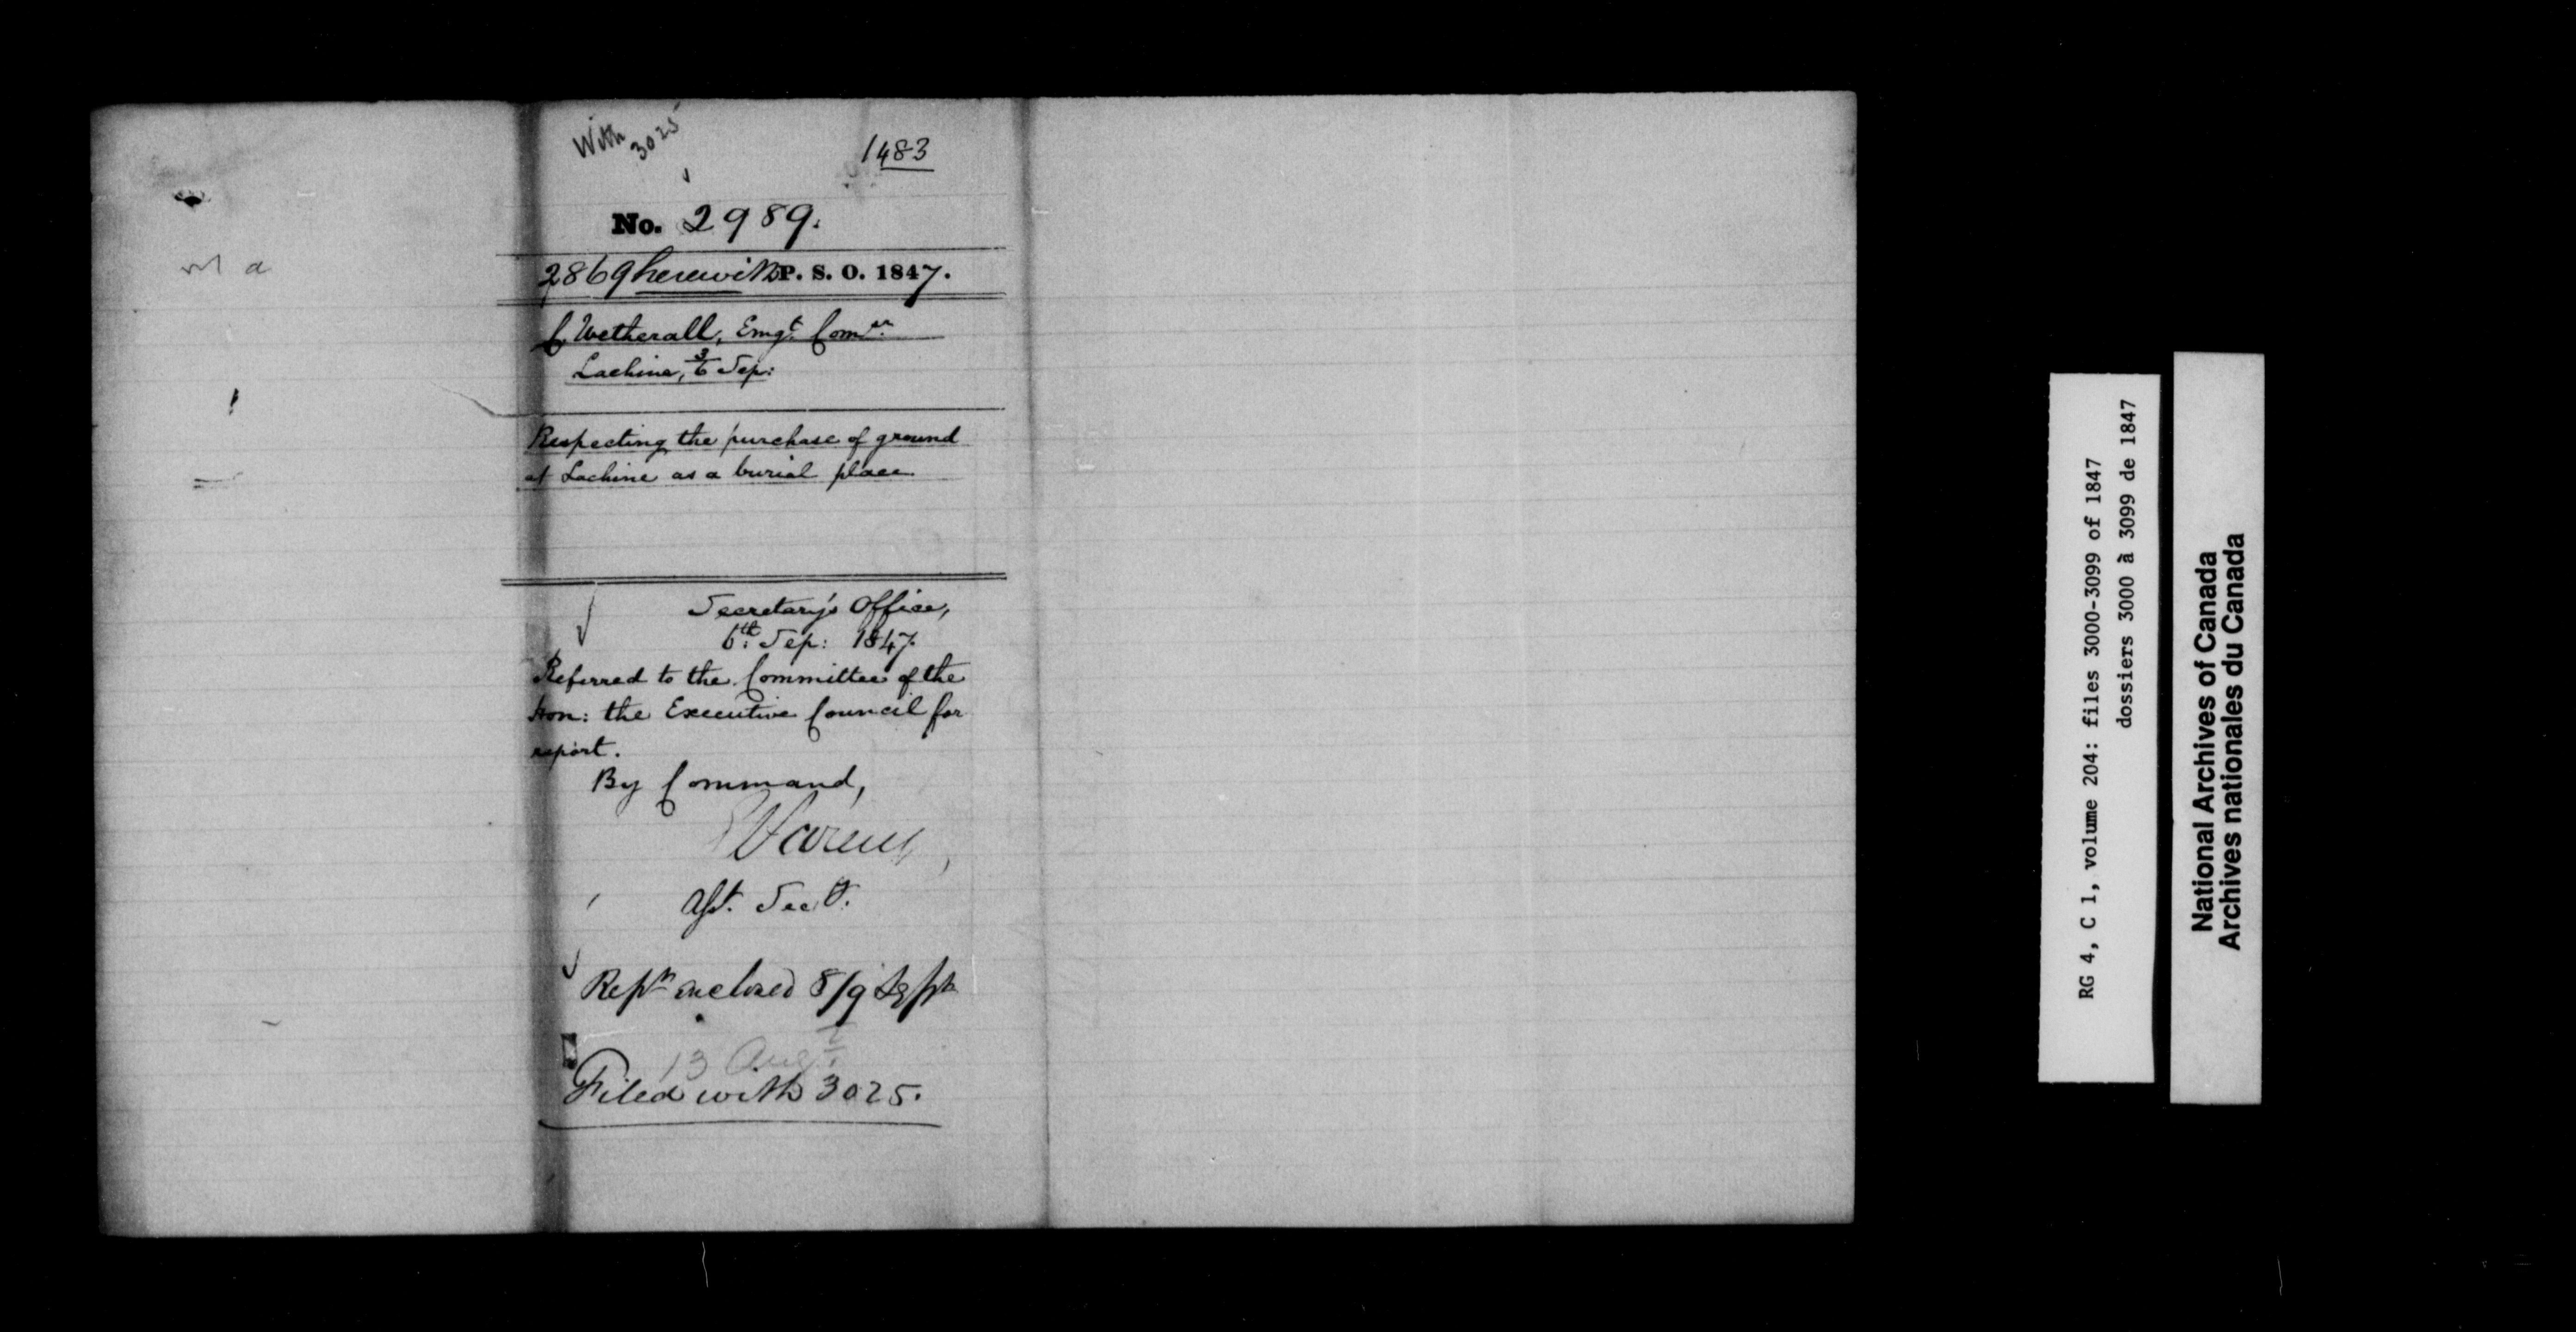 With
3025
1483
No. 2989.
2869 herewith P. S. O. 1847.
C. Wetherall, Emgt. Comer.
Lachine, 3/6 Sep:
Respecting the purchase of ground
at Lachine as a burial place
Secretary's Office,
6th Sep: 1847.
Referred to the Committee of the
Hon: the Executive Council for
report.
By Command,
Asst. Secy.
Reptn enclosed 8/9 Sept
13 Augt.
Filed with 3025.
RG 4, C 1, volume 204: files 3000-3099 of 1847
dossiers 3000 à 3099 de 1847
National Archives of Canada
Archives nationales du Canada